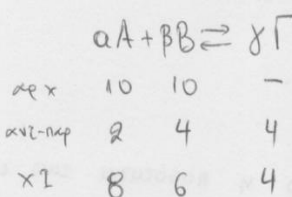 αA + βB ⇌ γΓ
αρχ 10 10 -
αντ-παρ 2 4 4
ΧΙ 8 6 4